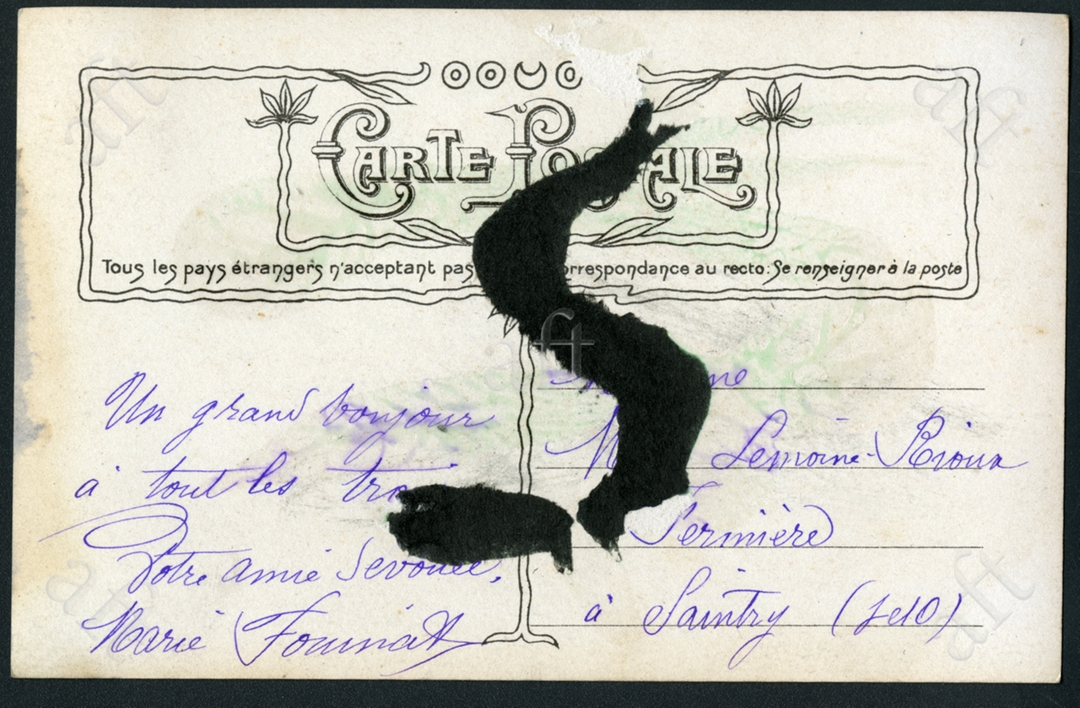 CARTE POSTALE
Tous les pays étrangers n'acceptant pas correspondance au recto: Se renseigner à la poste
Un grand bonjour
à tout les
Votre amie dévouée,
Marie
ne
M Lemoine-Rioux
Fermière
à Saintry (S et O)
aft